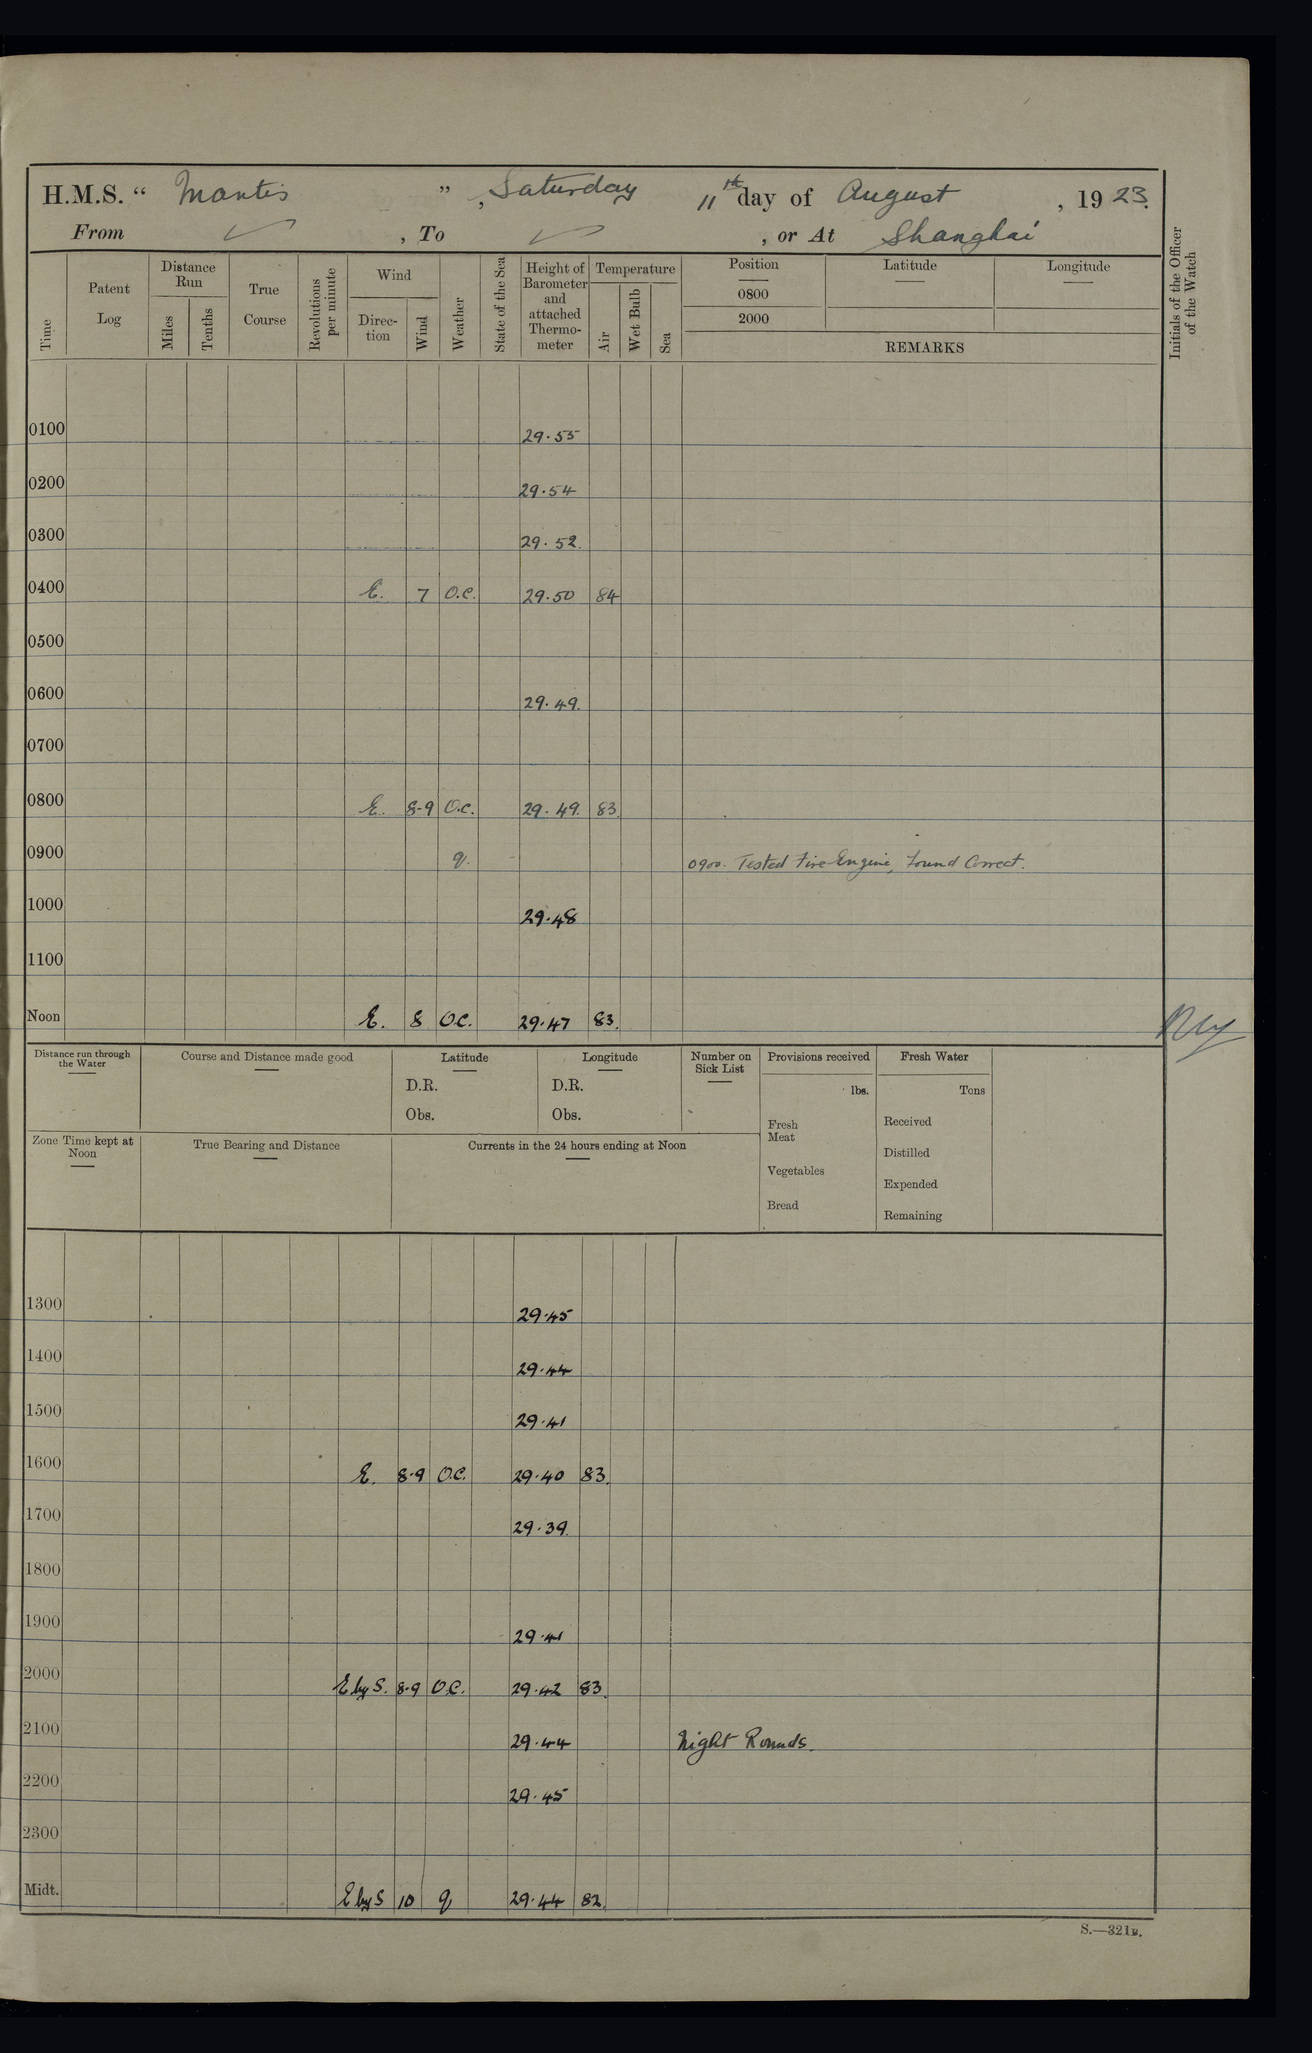 H.M.S. “ Mantis ” , Saturday 11th day of August , 19 23.
From ✓ , To ✓ , or At Shanghai
Time
Patent Log
Distance Run
Miles
Tenths
True Course
Revolutions per minute
Wind
Direc- tion
Wind
Weather
State of the Sea
Height of Barometer and attached Thermo- meter
Temperature
Air
Wet Bulb
Sea
Position
0800
2000
Latitude
Longitude
REMARKS
Initials of the Officer of the Watch
0100 29.55
0200 29.54
0300 29.52.
0400 E. 7 O.C. 29.50 84
0500
0600 29.49.
0700
0800 E. 8-9 O.C. 29.49. 83.
0900 q. 0900. Tested Fire Engine, found Correct.
1000 29.48
1100
Noon E. 8 O.C. 29.47 83.
Distance run through the Water
Course and Distance made good
Latitude
D.R.
Obs.
Longitude
D.R.
Obs.
Number on Sick List
Provisions received
lbs.
Fresh Meat
Vegetables
Bread
Fresh Water
Tons
Received
Distilled
Expended
Remaining
Zone Time kept at Noon
True Bearing and Distance
Currents in the 24 hours ending at Noon
1300 29.45
1400 29.44
1500 29.41
1600 E. 8-9 O.C. 29.40 83.
1700 29.39.
1800
1900 29.41
2000 E by S. 8-9 O.C. 29.42 83.
2100 29.44 Night Rounds.
2200 29.45
2300
Midt. E by S 10 q 29.44 82.
S.—321B.